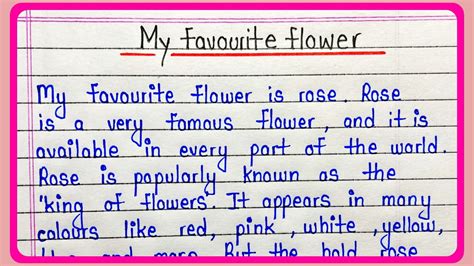 My favourite flower
My favourite flower is rose. Rose
is a very famous flower, and it is
available in every part of the world.
Rose is popularly known as the
"king of flowers". It appears in many
colours like red, pink, white, yellow,
and more. But the bold rose